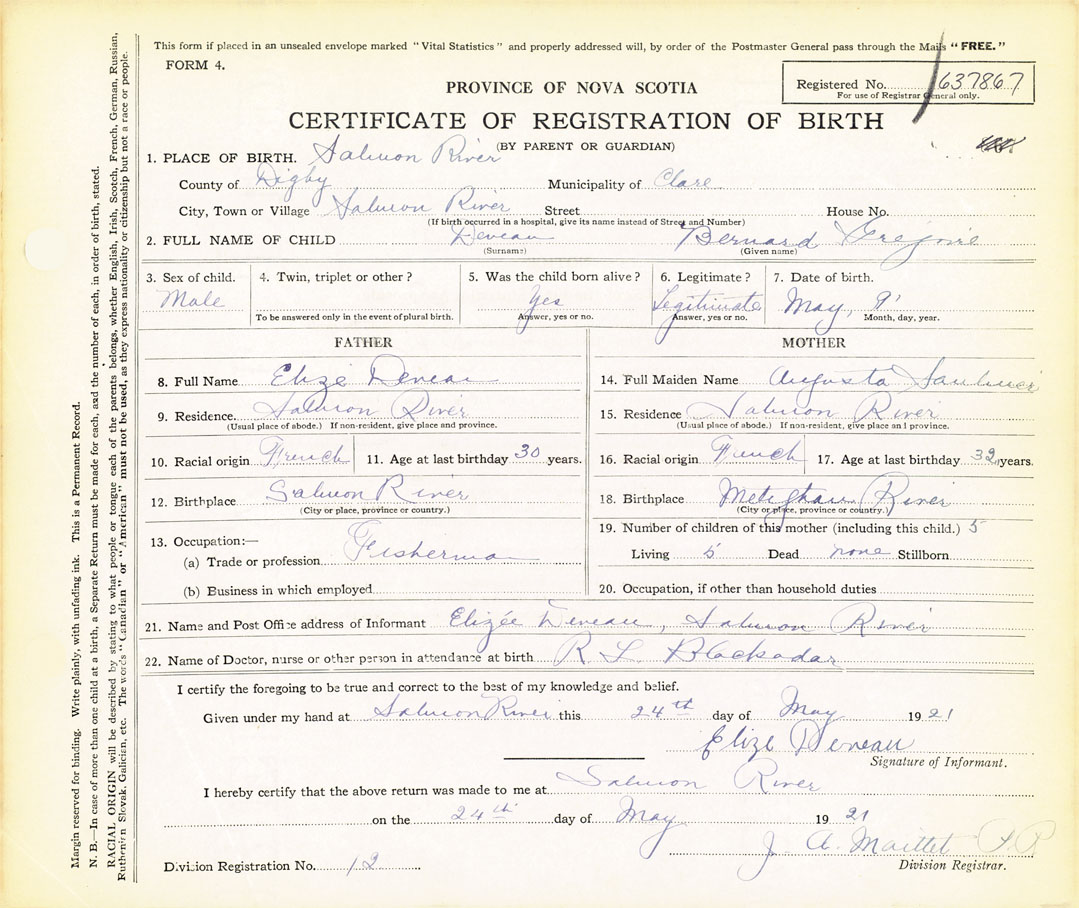 This form if placed in an unsealed envelope marked "Vital Statistics" and properly addressed will, by order of the Postmaster General pass through the Mails "FREE."
FORM 4.
Registered No. 637867
For use of Registrar General only.
PROVINCE OF NOVA SCOTIA
CERTIFICATE OF REGISTRATION OF BIRTH
(BY PARENT OR GUARDIAN)
1. PLACE OF BIRTH. Salmon River
County of Digby Municipality of Clare
City, Town or Village Salmon River Street House No.
(If birth occurred in a hospital, give its name instead of Street and Number)
2. FULL NAME OF CHILD Deveau Bernard Gregoire
(Surname) (Given name)
3. Sex of child. 4. Twin, triplet or other? 5. Was the child born alive? 6. Legitimate? 7. Date of birth.
Male Yes Legitimate May, 9
To be answered only in the event of plural birth. Answer, yes or no. Answer, yes or no. Month, day, year.
FATHER MOTHER
8. Full Name Elizé Deveau 14. Full Maiden Name Augusta Saulnier
9. Residence. Salmon River 15. Residence Salmon River
(Usual place of abode.) If non-resident, give place and province. (Usual place of abode.) If non-resident, give place and province.
10. Racial origin French 11. Age at last birthday 30 years. 16. Racial origin French 17. Age at last birthday 32 years.
12. Birthplace Salmon River 18. Birthplace Meteghan River
(City or place, province or country.) (City or place, province or country.)
19. Number of children of this mother (including this child.) 5
13. Occupation:—
Living 5 Dead none Stillborn
(a) Trade or profession Fisherman
(b) Business in which employed 20. Occupation, if other than household duties
21. Name and Post Office address of Informant Elizée Deveau, Salmon River
22. Name of Doctor, nurse or other person in attendance at birth R. L. Blackadar
I certify the foregoing to be true and correct to the best of my knowledge and belief.
Given under my hand at Salmon River this 24th day of May 1921
Elize Deveau
Signature of Informant.
I hereby certify that the above return was made to me at Salmon River
on the 24th day of May 1921
J. A. Maillet
Division Registrar.
Division Registration No. 12
Margin reserved for binding. Write plainly, with unfading ink. This is a Permanent Record.
N. B.—In case of more than one child at a birth, a Separate Return must be made for each, and the number of each, in order of birth, stated.
RACIAL ORIGIN will be described by stating to what people or tongue each of the parents belongs, whether English, Irish, Scotch, French, German, Russian,
Ruthenian, Slovak, Galician, etc. The words "Canadian" or "American" must not be used, as they express nationality or citizenship but not a race or people.